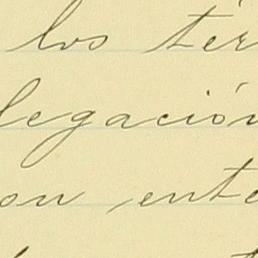 los tér
legación
on ente